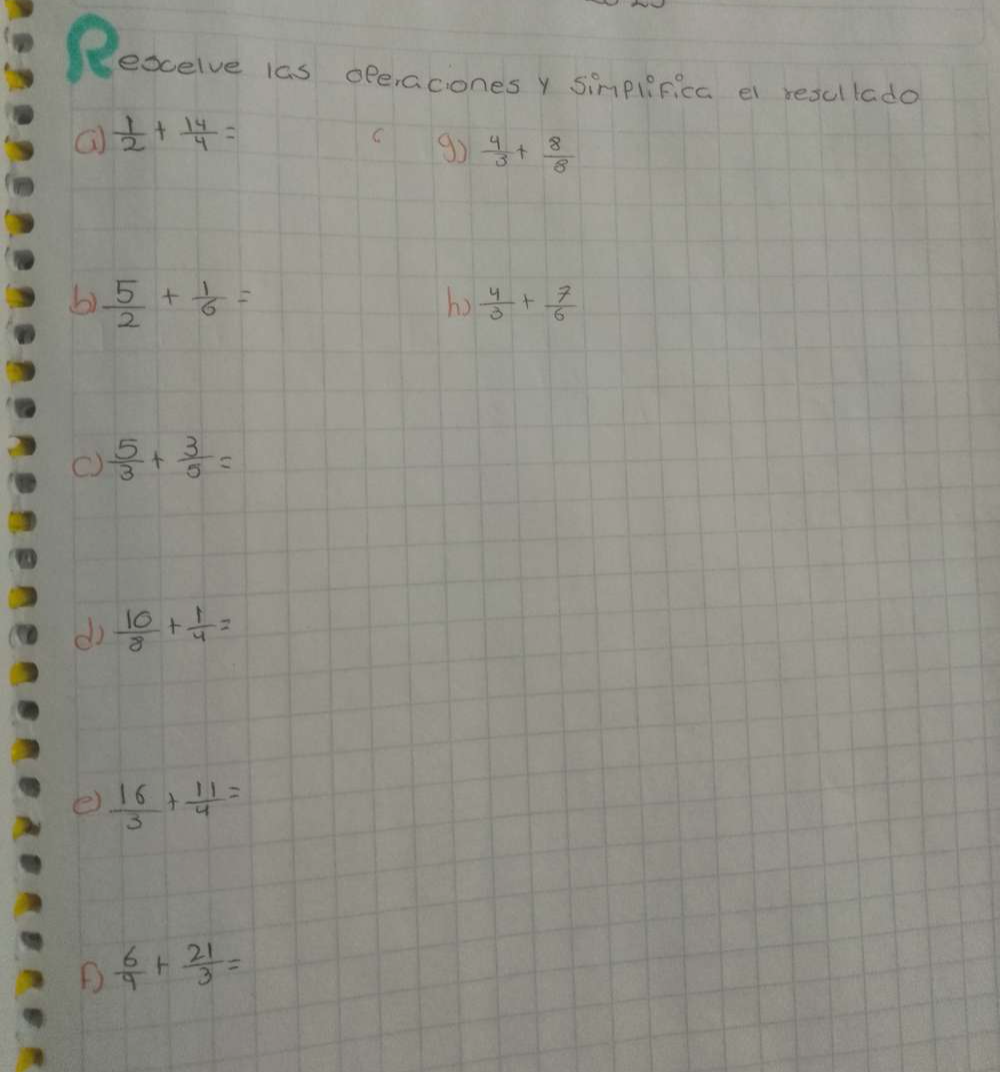 Rescelve las operaciones y simplifica el resultado
a) 1/2 + 14/4 =
g) 4/3 + 8/8
b) 5/2 + 1/6 =
h) 4/3 + 7/6
c) 5/3 + 3/5 =
d) 10/8 + 1/4 =
e) 16/3 + 11/4 =
f) 6/9 + 21/3 =